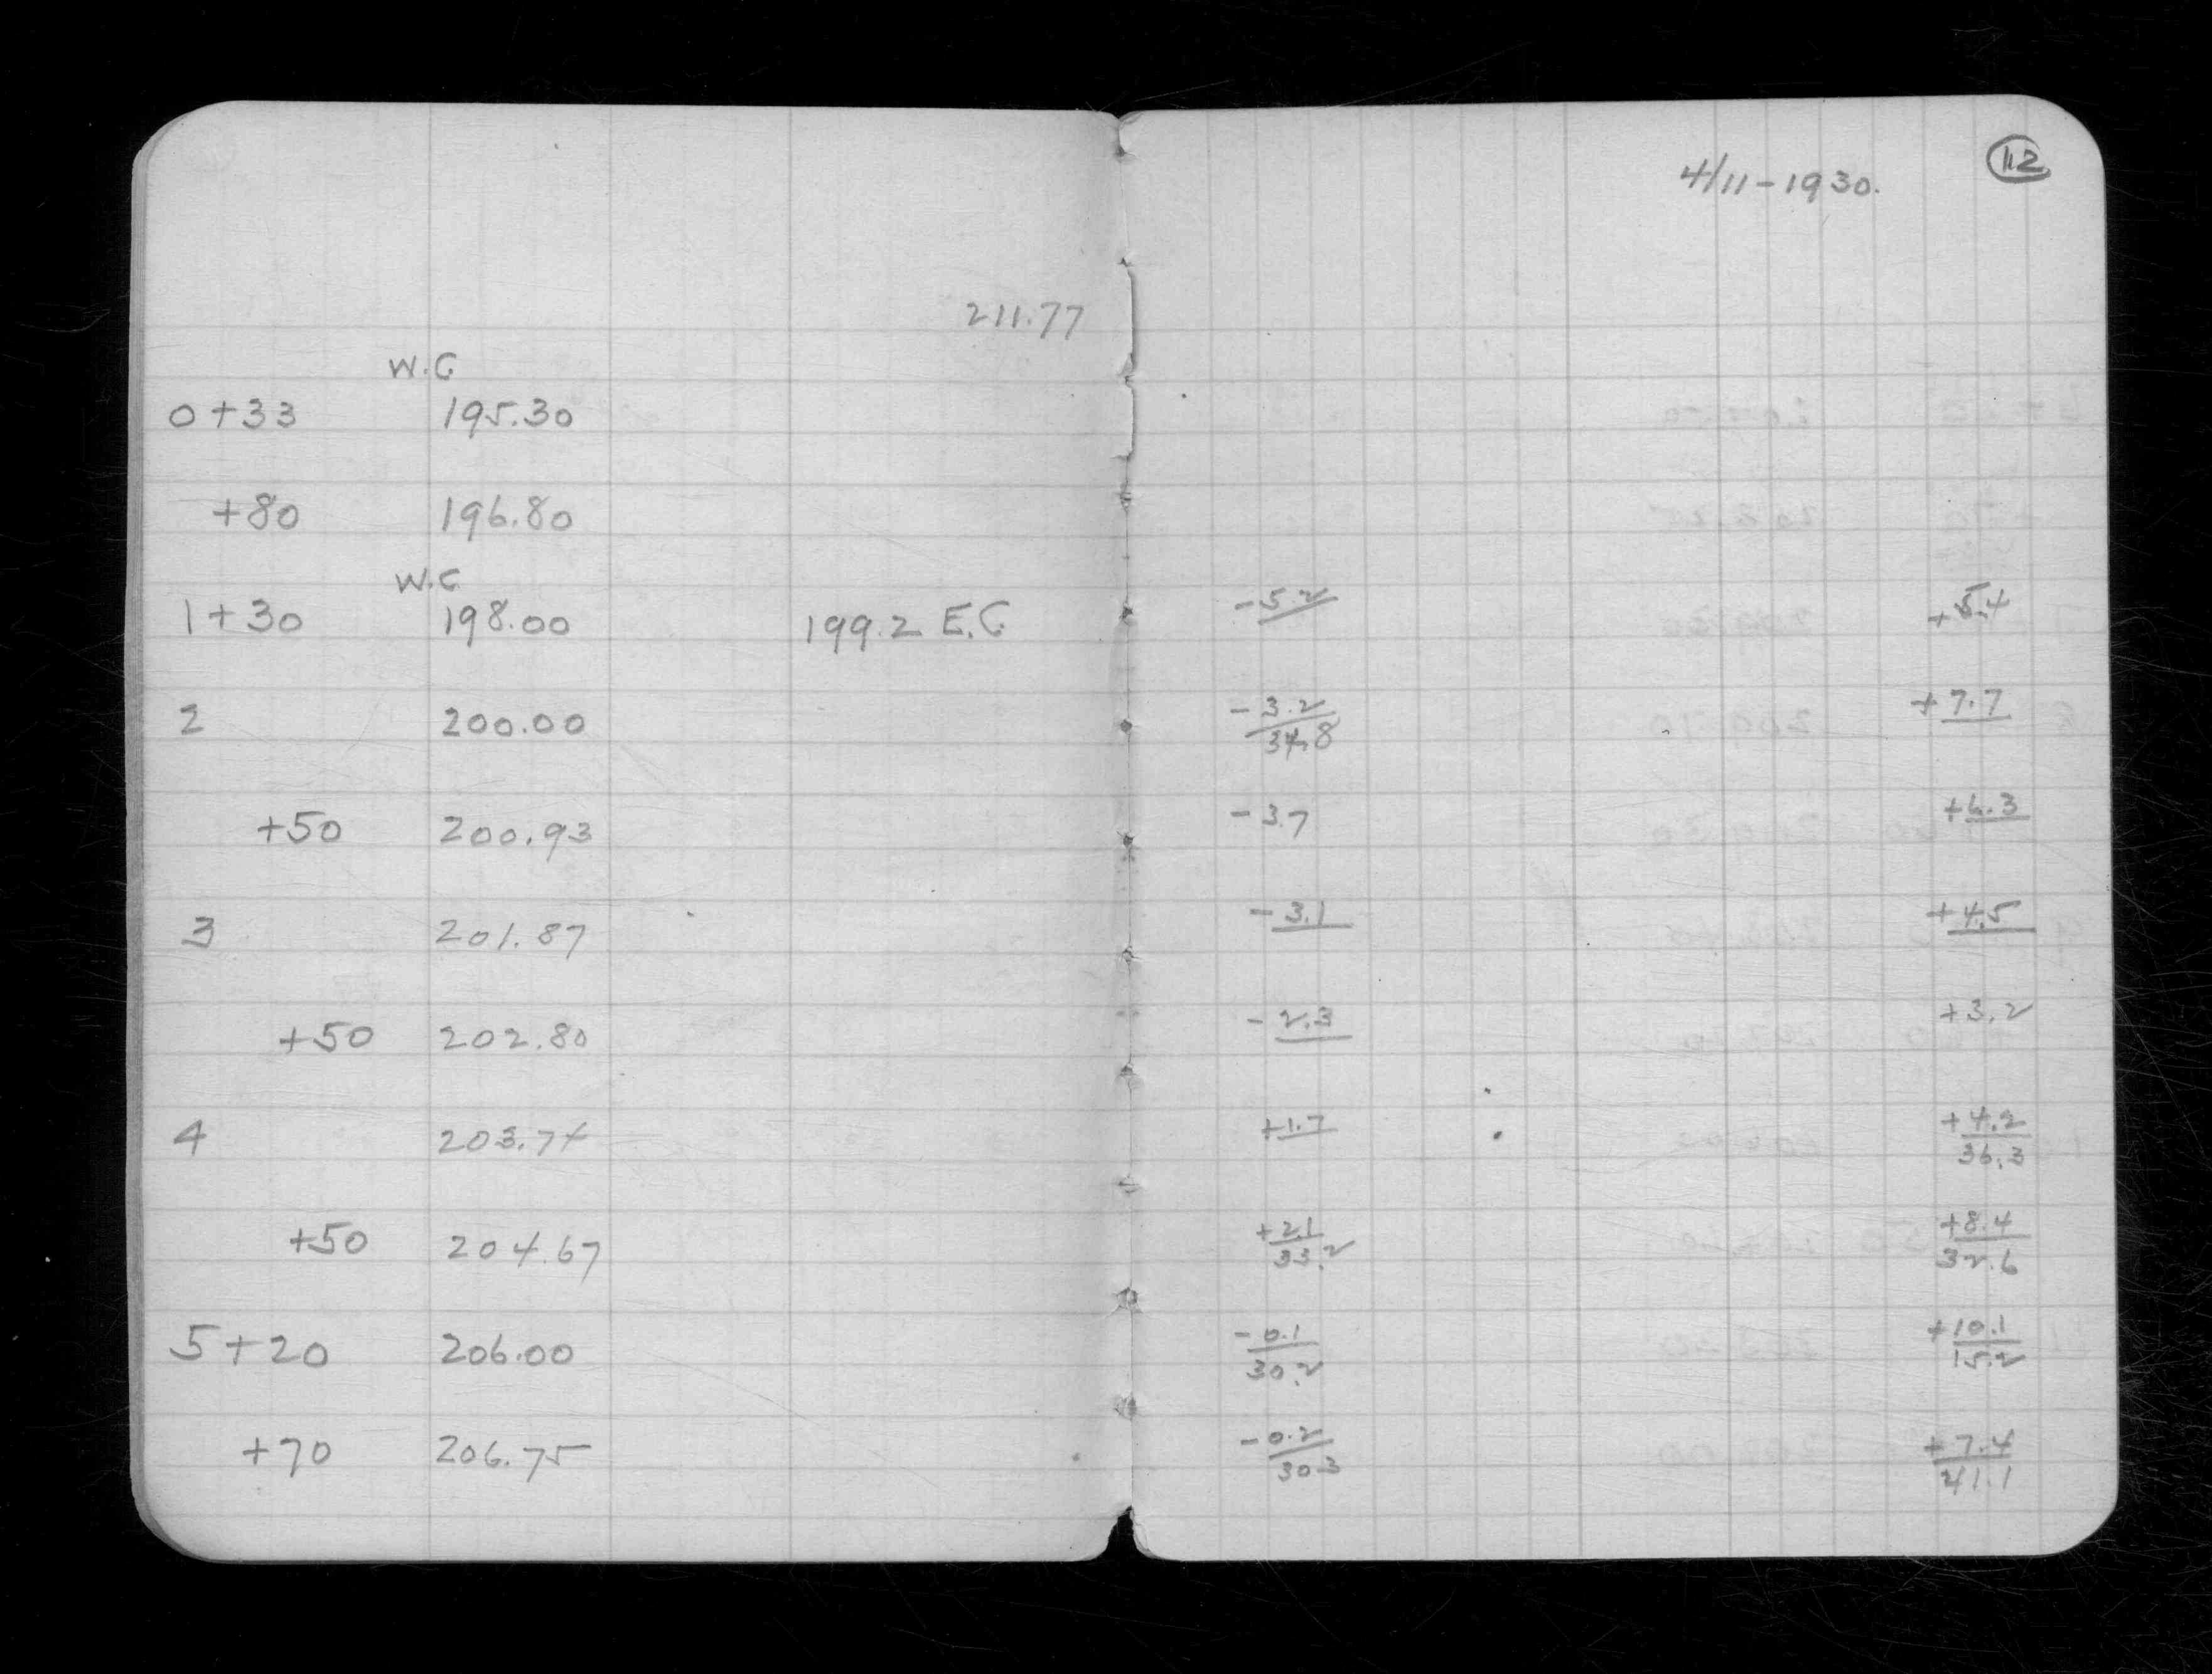 4/11-1930. 112
211.77
W.C
0+33 195.30
+80 196.80
W.C
1+30 198.00 199.2 E.C. -5.2 +5.4
2 200.00 -3.2 +7.7
+50 200.93 -3.7 +6.3
3 201.87 -3.1 +4.5
+50 202.80 -2.3 +3.2
4 203.74 +1.7 +4.2
36.3
+50 204.67 +2.1 +8.4
33.2 32.6
5+20 206.00 -0.1 +10.1
30.2 15.2
+70 206.75 -0.2 +7.4
30.3 41.1